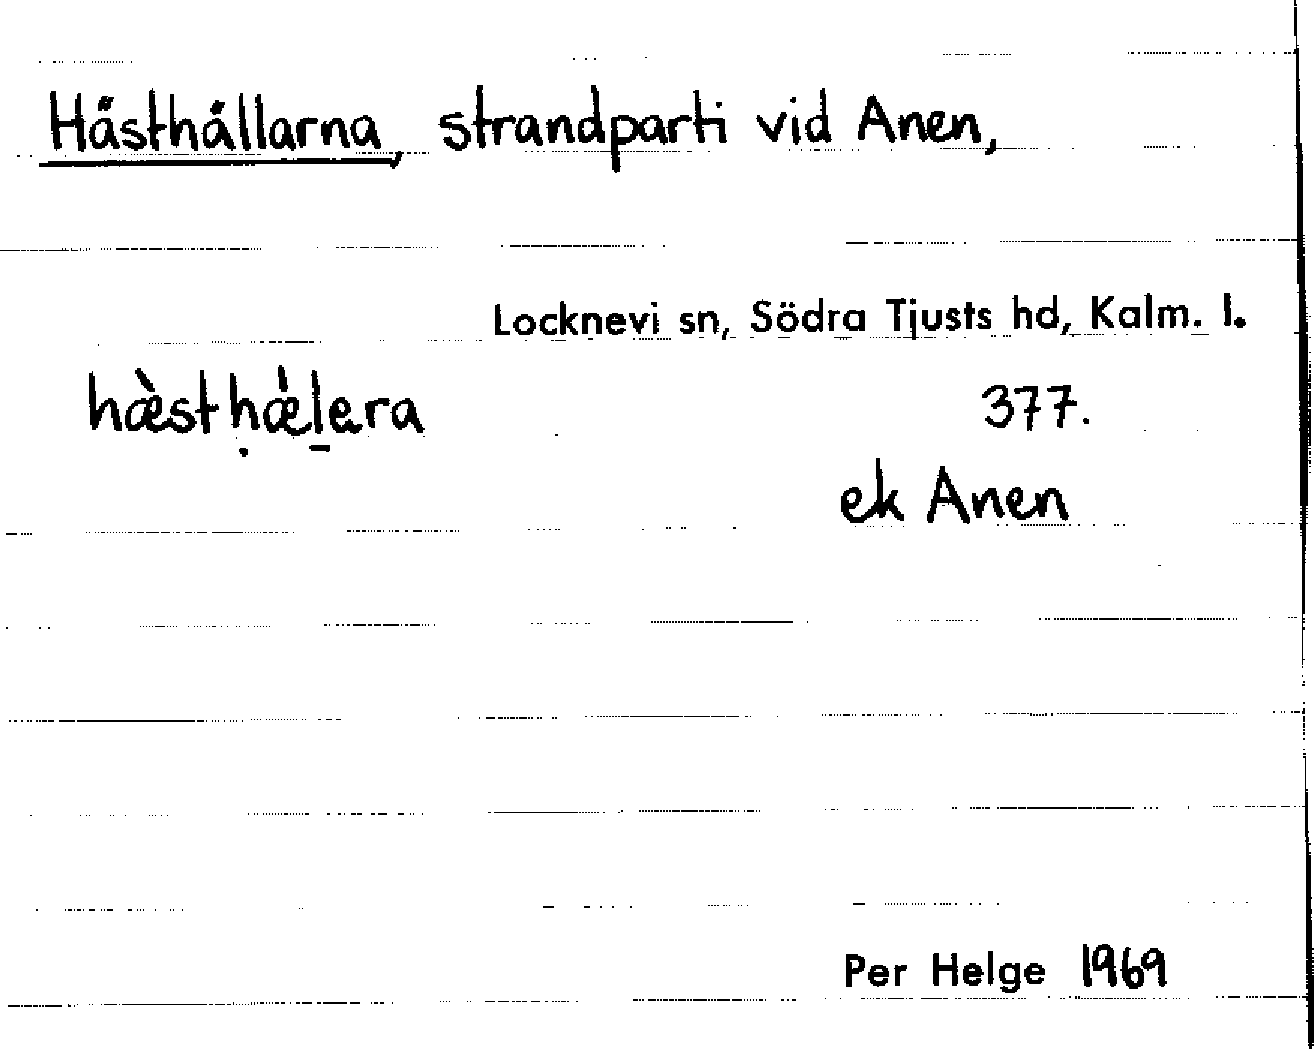 Hästhällarna, strandparti vid Anen,
Locknevi sn, Södra Tjusts hd, Kalm. l.
hæ̀stḥæ̀l̠era 377.
ek Anen
Per Helge 1969